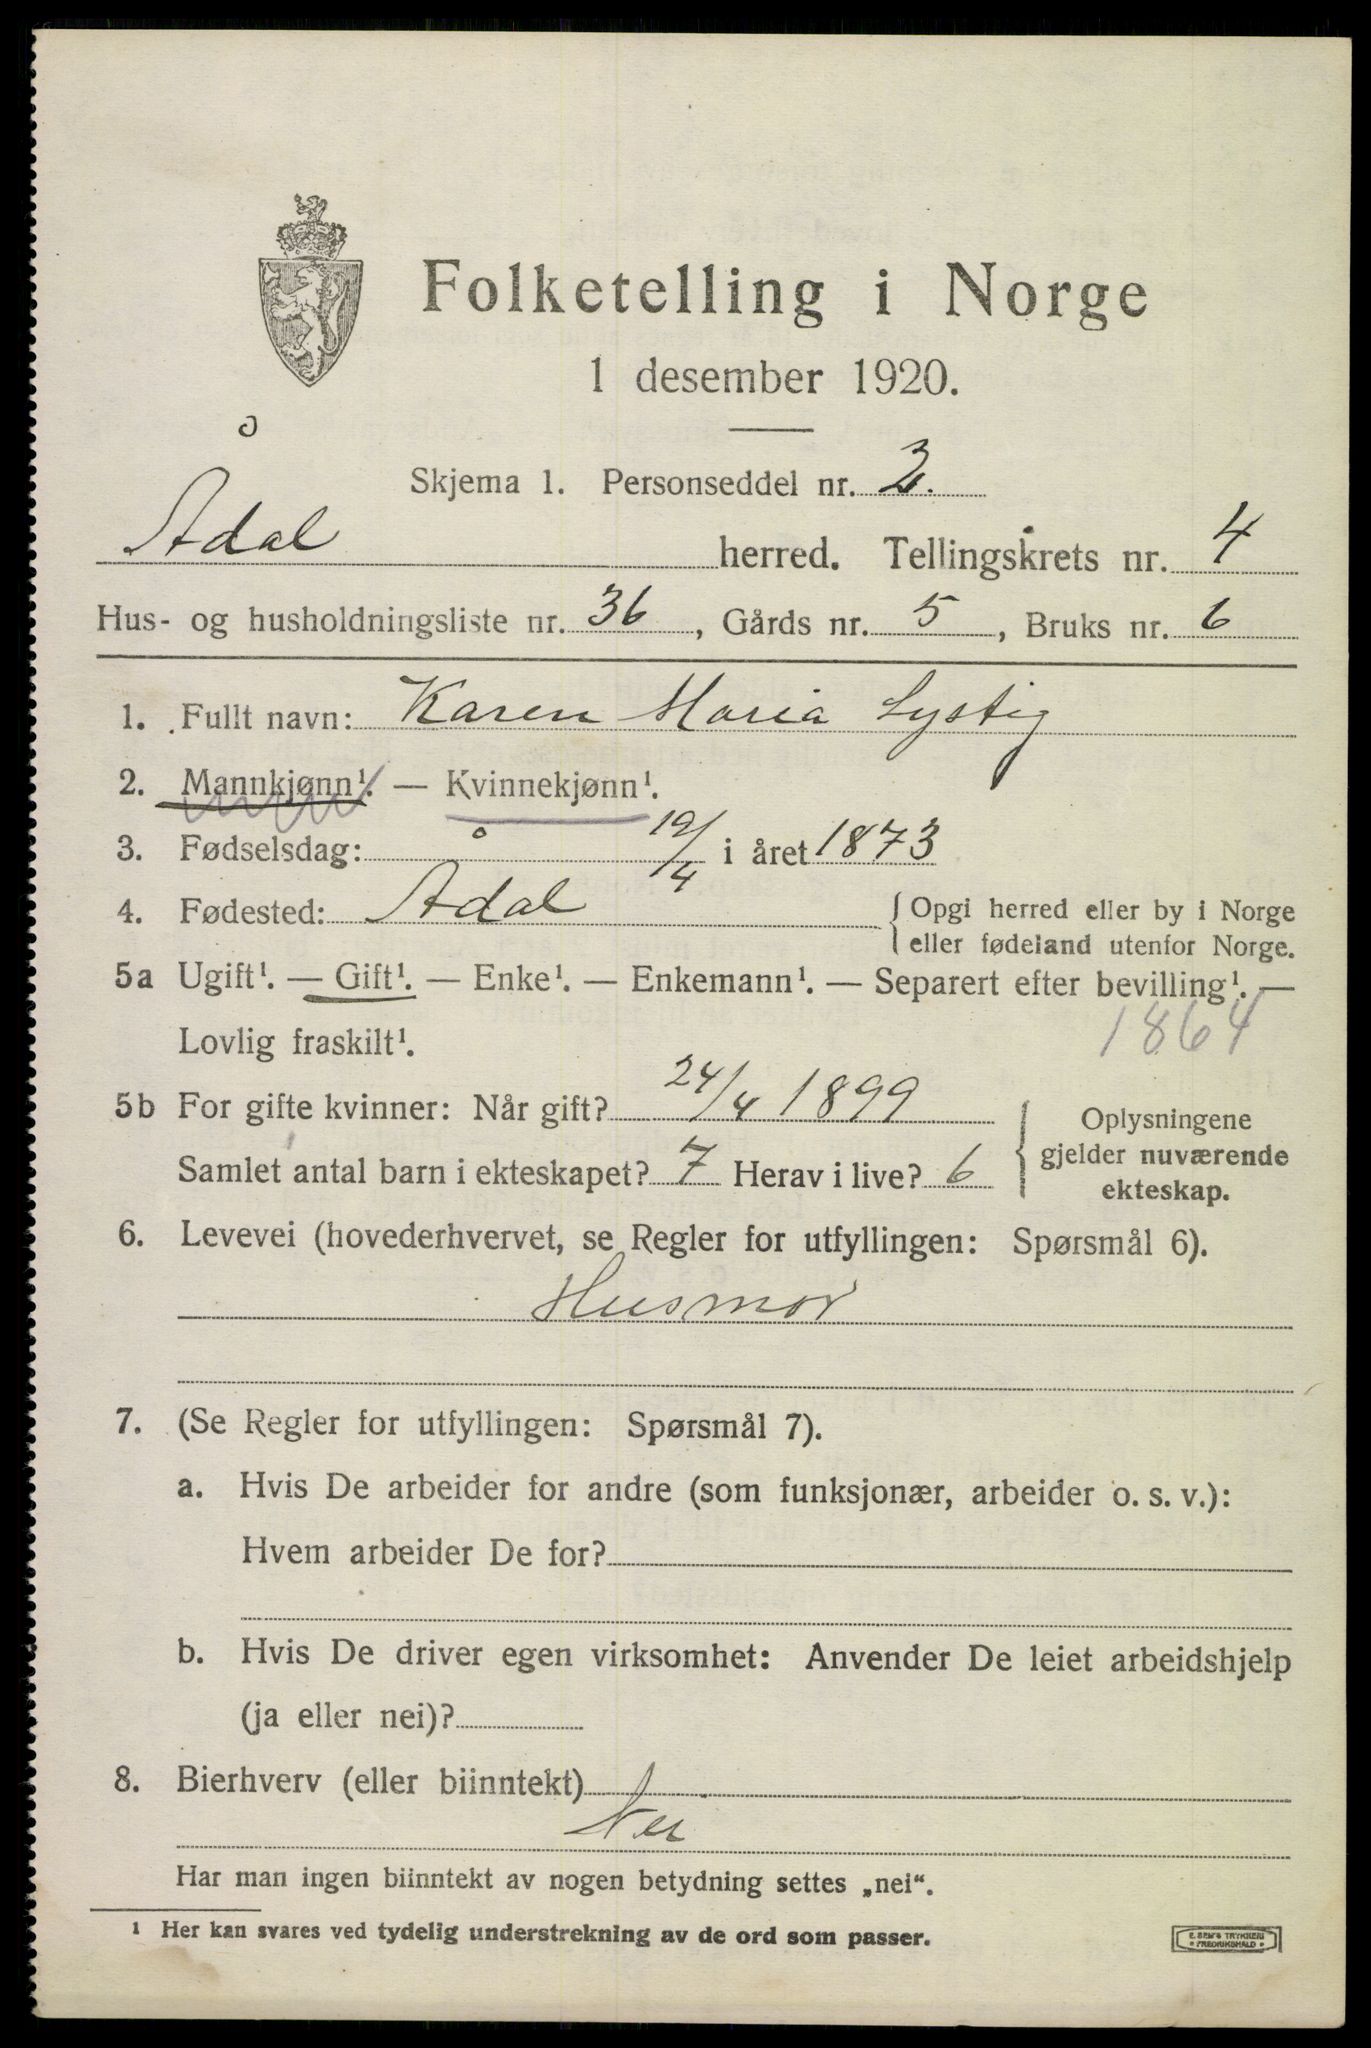 Folketelling i Norge
1 desember 1920.
Skjema 1. Personseddel nr. 2.
Ådal herred. Tellingskrets nr. 4
Hus- og husholdningsliste nr. 36, Gårds nr. 5, Bruks nr. 6
1. Fullt navn: Karen Maria Lystig
2. Mannkjønn¹. — Kvinnekjønn¹.
3. Fødselsdag: 19/4 i året 1873
4. Fødested: Ådal {Opgi herred eller by i Norge
eller fødeland utenfor Norge.
5a Ugift¹. — Gift¹. — Enke¹. — Enkemann¹. — Separert efter bevilling¹. —
Lovlig fraskilt¹. 1864
5b For gifte kvinner: Når gift? 24/4 1899
Samlet antal barn i ekteskapet? 7 Herav i live? 6
{Oplysningene
gjelder nuværende
ekteskap.
6. Levevei (hovederhvervet, se Regler for utfyllingen: Spørsmål 6).
Husmor
7. (Se Regler for utfyllingen: Spørsmål 7).
a. Hvis De arbeider for andre (som funksjonær, arbeider o. s. v.):
Hvem arbeider De for?
b. Hvis De driver egen virksomhet: Anvender De leiet arbeidshjelp
(ja eller nei)?
8. Bierhverv (eller biinntekt)
Nei
Har man ingen biinntekt av nogen betydning settes „nei“.
¹ Her kan svares ved tydelig understrekning av de ord som passer.
E. SEM'S TRYKKERI
• FREDRIKSHALD •